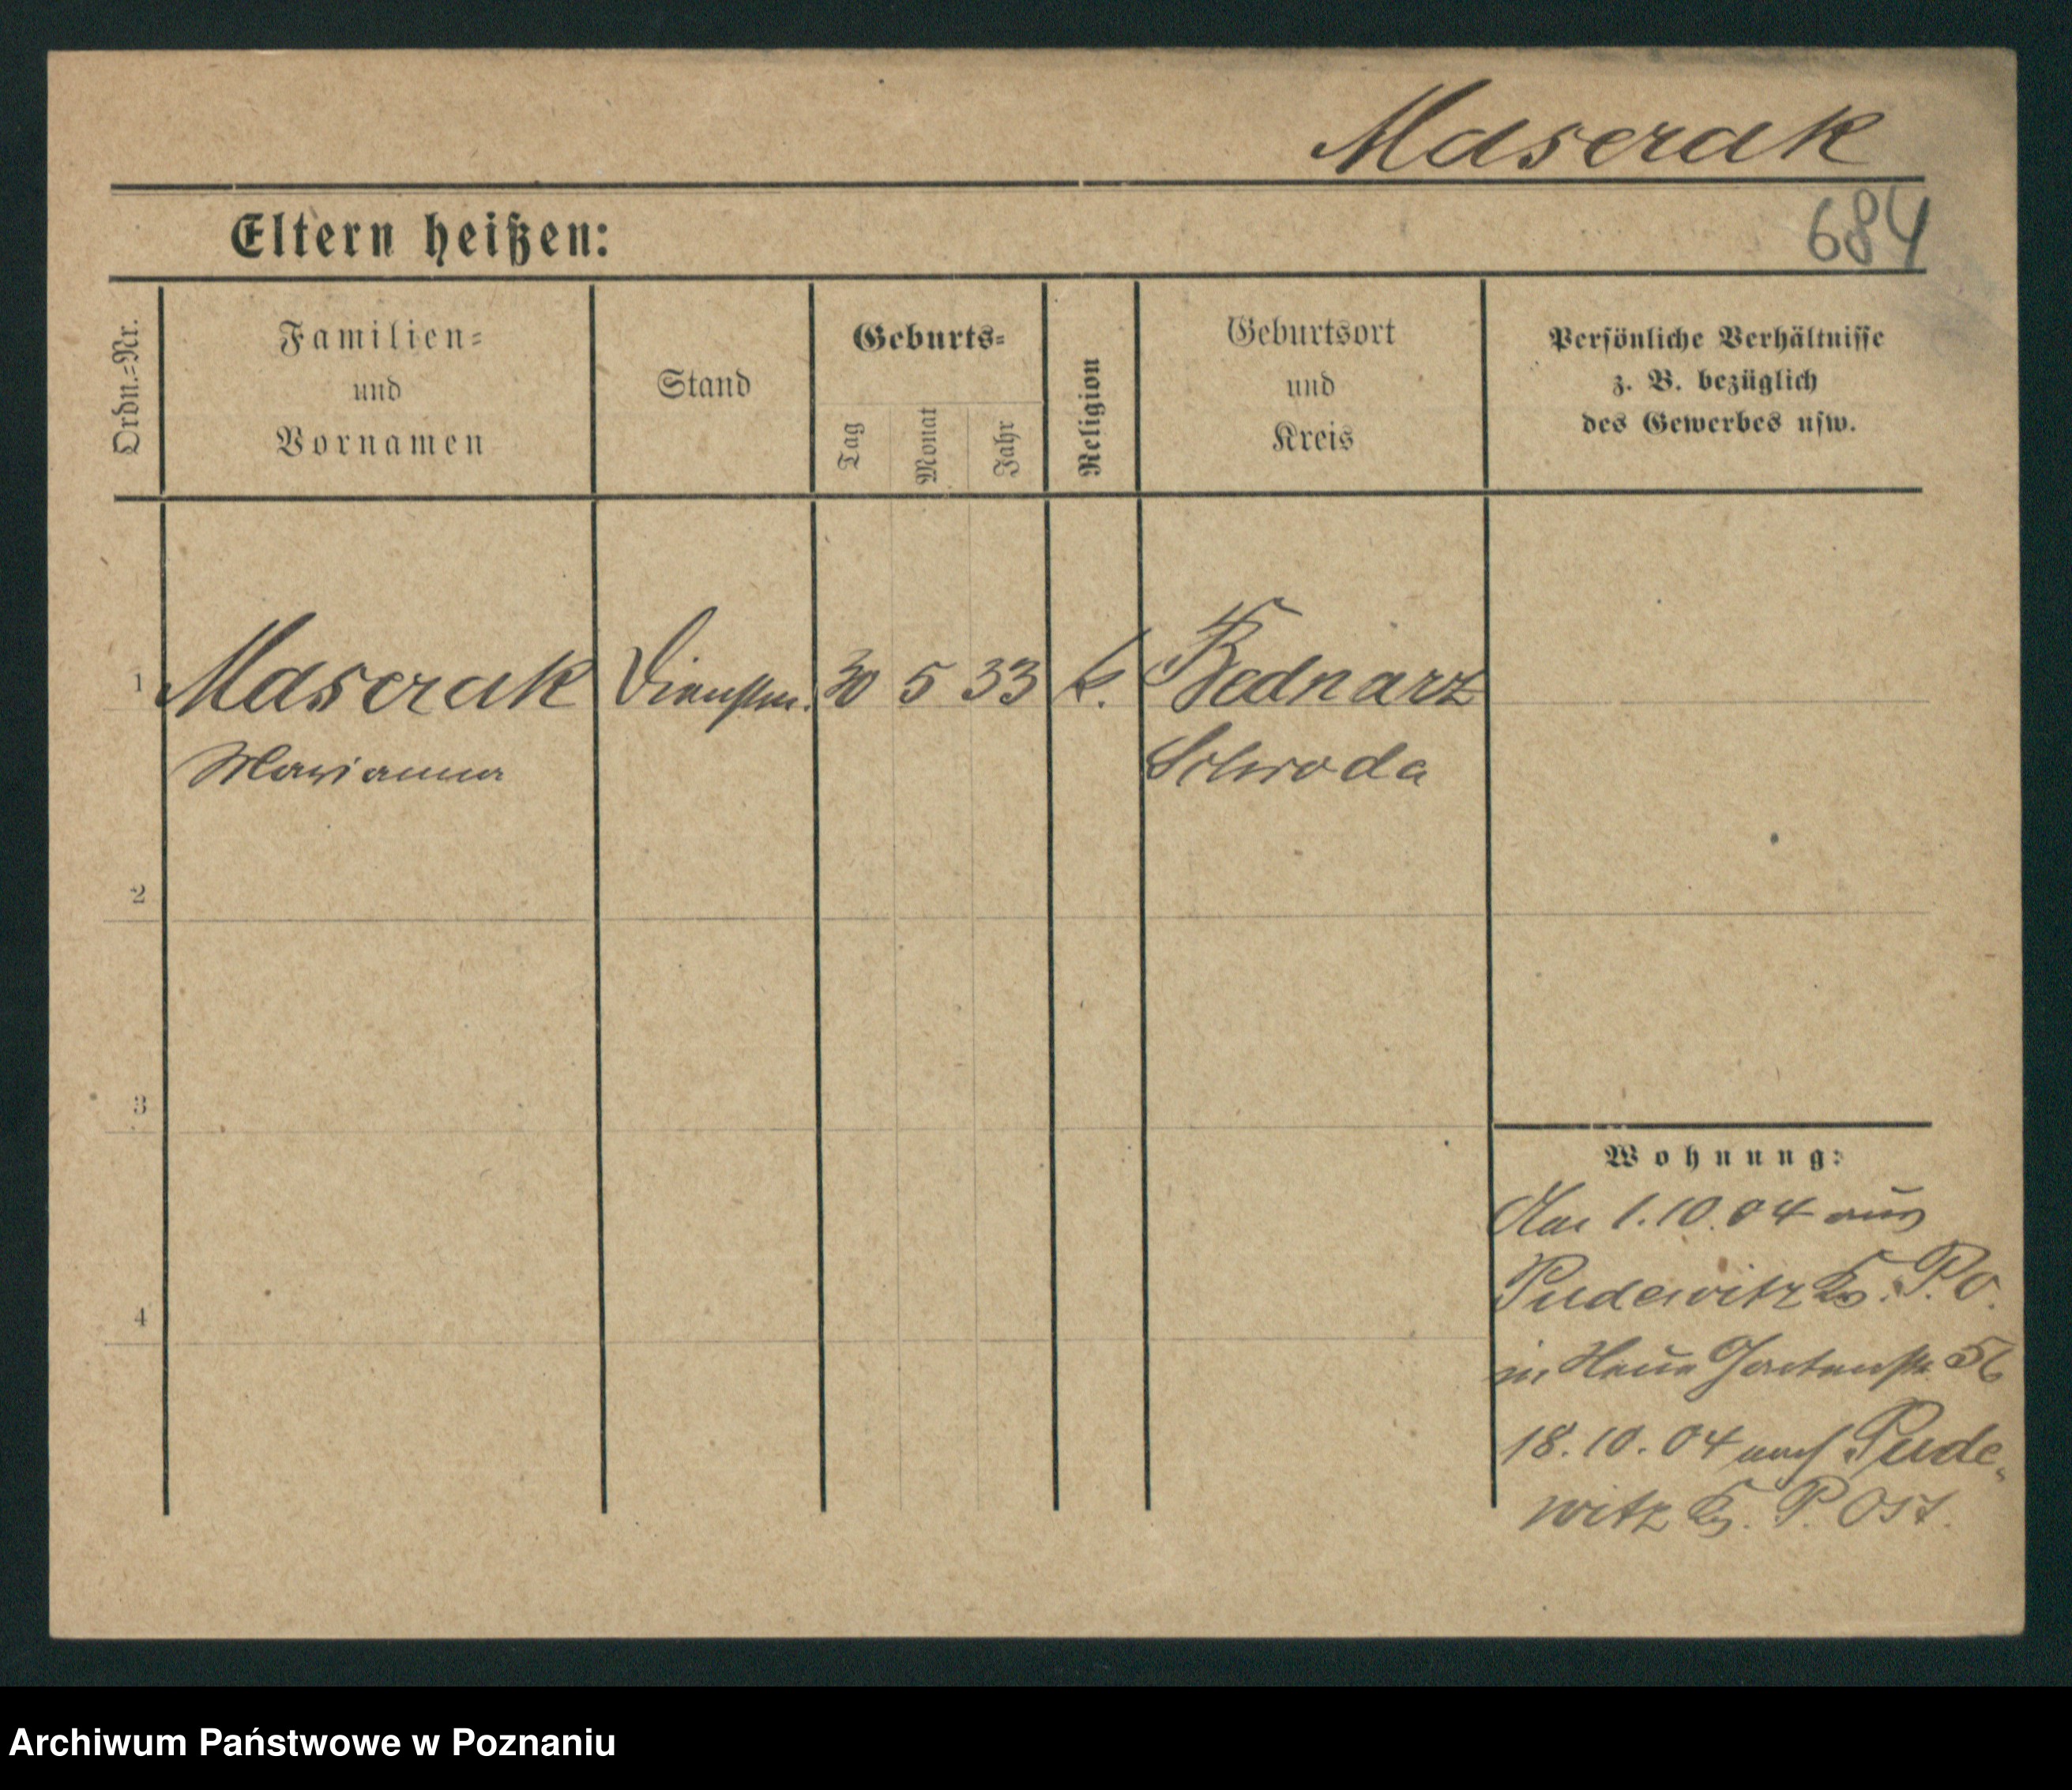 Maserak
Eltern heißen:
684
Ordn.-Nr.
Familien-
und
Vornamen
Stand
Geburts-
Tag
Monat
Jahr
Religion
Geburtsort
und
Kreis
Persönliche Verhältnisse
z. B. bezüglich
des Gewerbes usw.
1 Maserak Dienstm. 30 5 33 k. Bednarz
Marianna Schroda
2
3
4
Wohnung:
Am 1.10.04 aus
Pudewitz Kr. P. O.
in Neue Gartenstr. 56
18.10.04 nach Pude-
witz Kr. P. Ost.
Archiwum Państwowe w Poznaniu